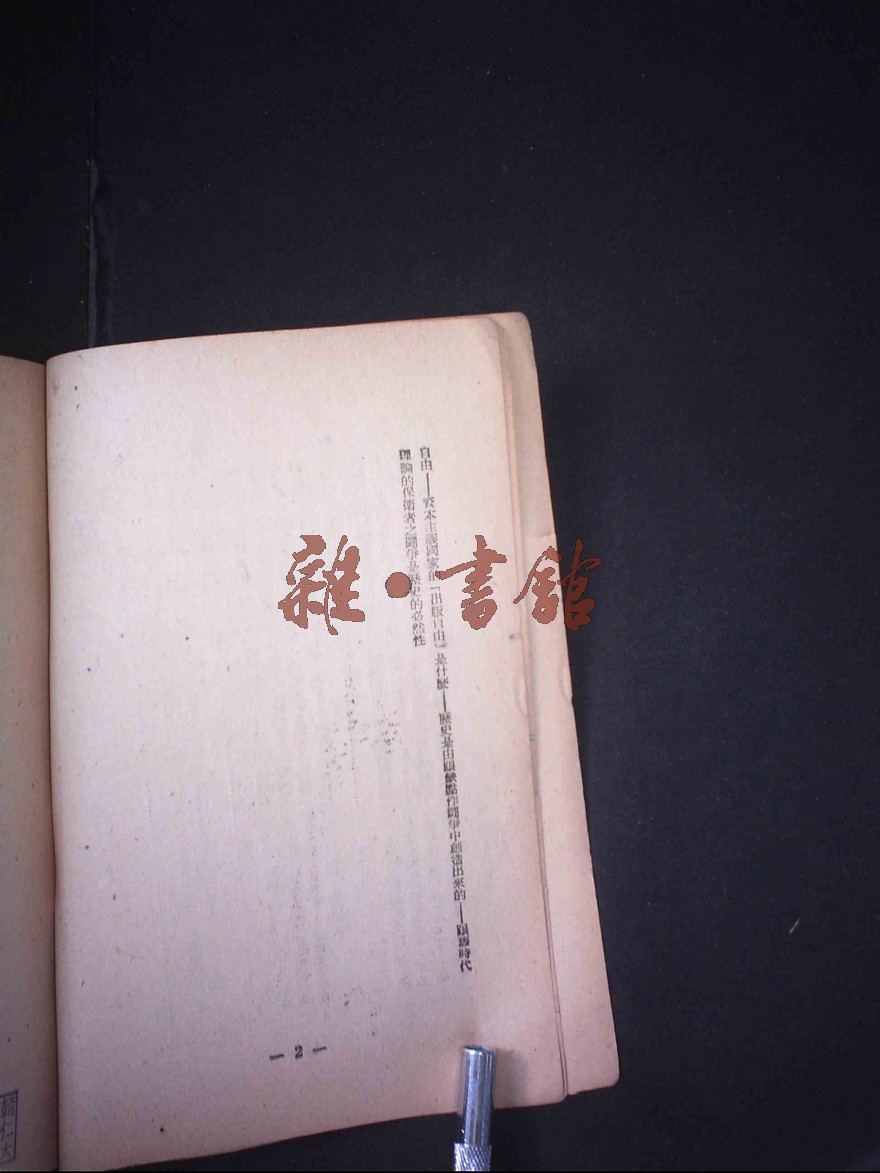 自由——資本主義國家的「出版自由」是什麼——歷史是由跟缺點作鬪爭中創造出來的——跟舊時代
理論的保衛者之鬪爭是歷史的必然性
— 2 —
雜·書館
輔仁大